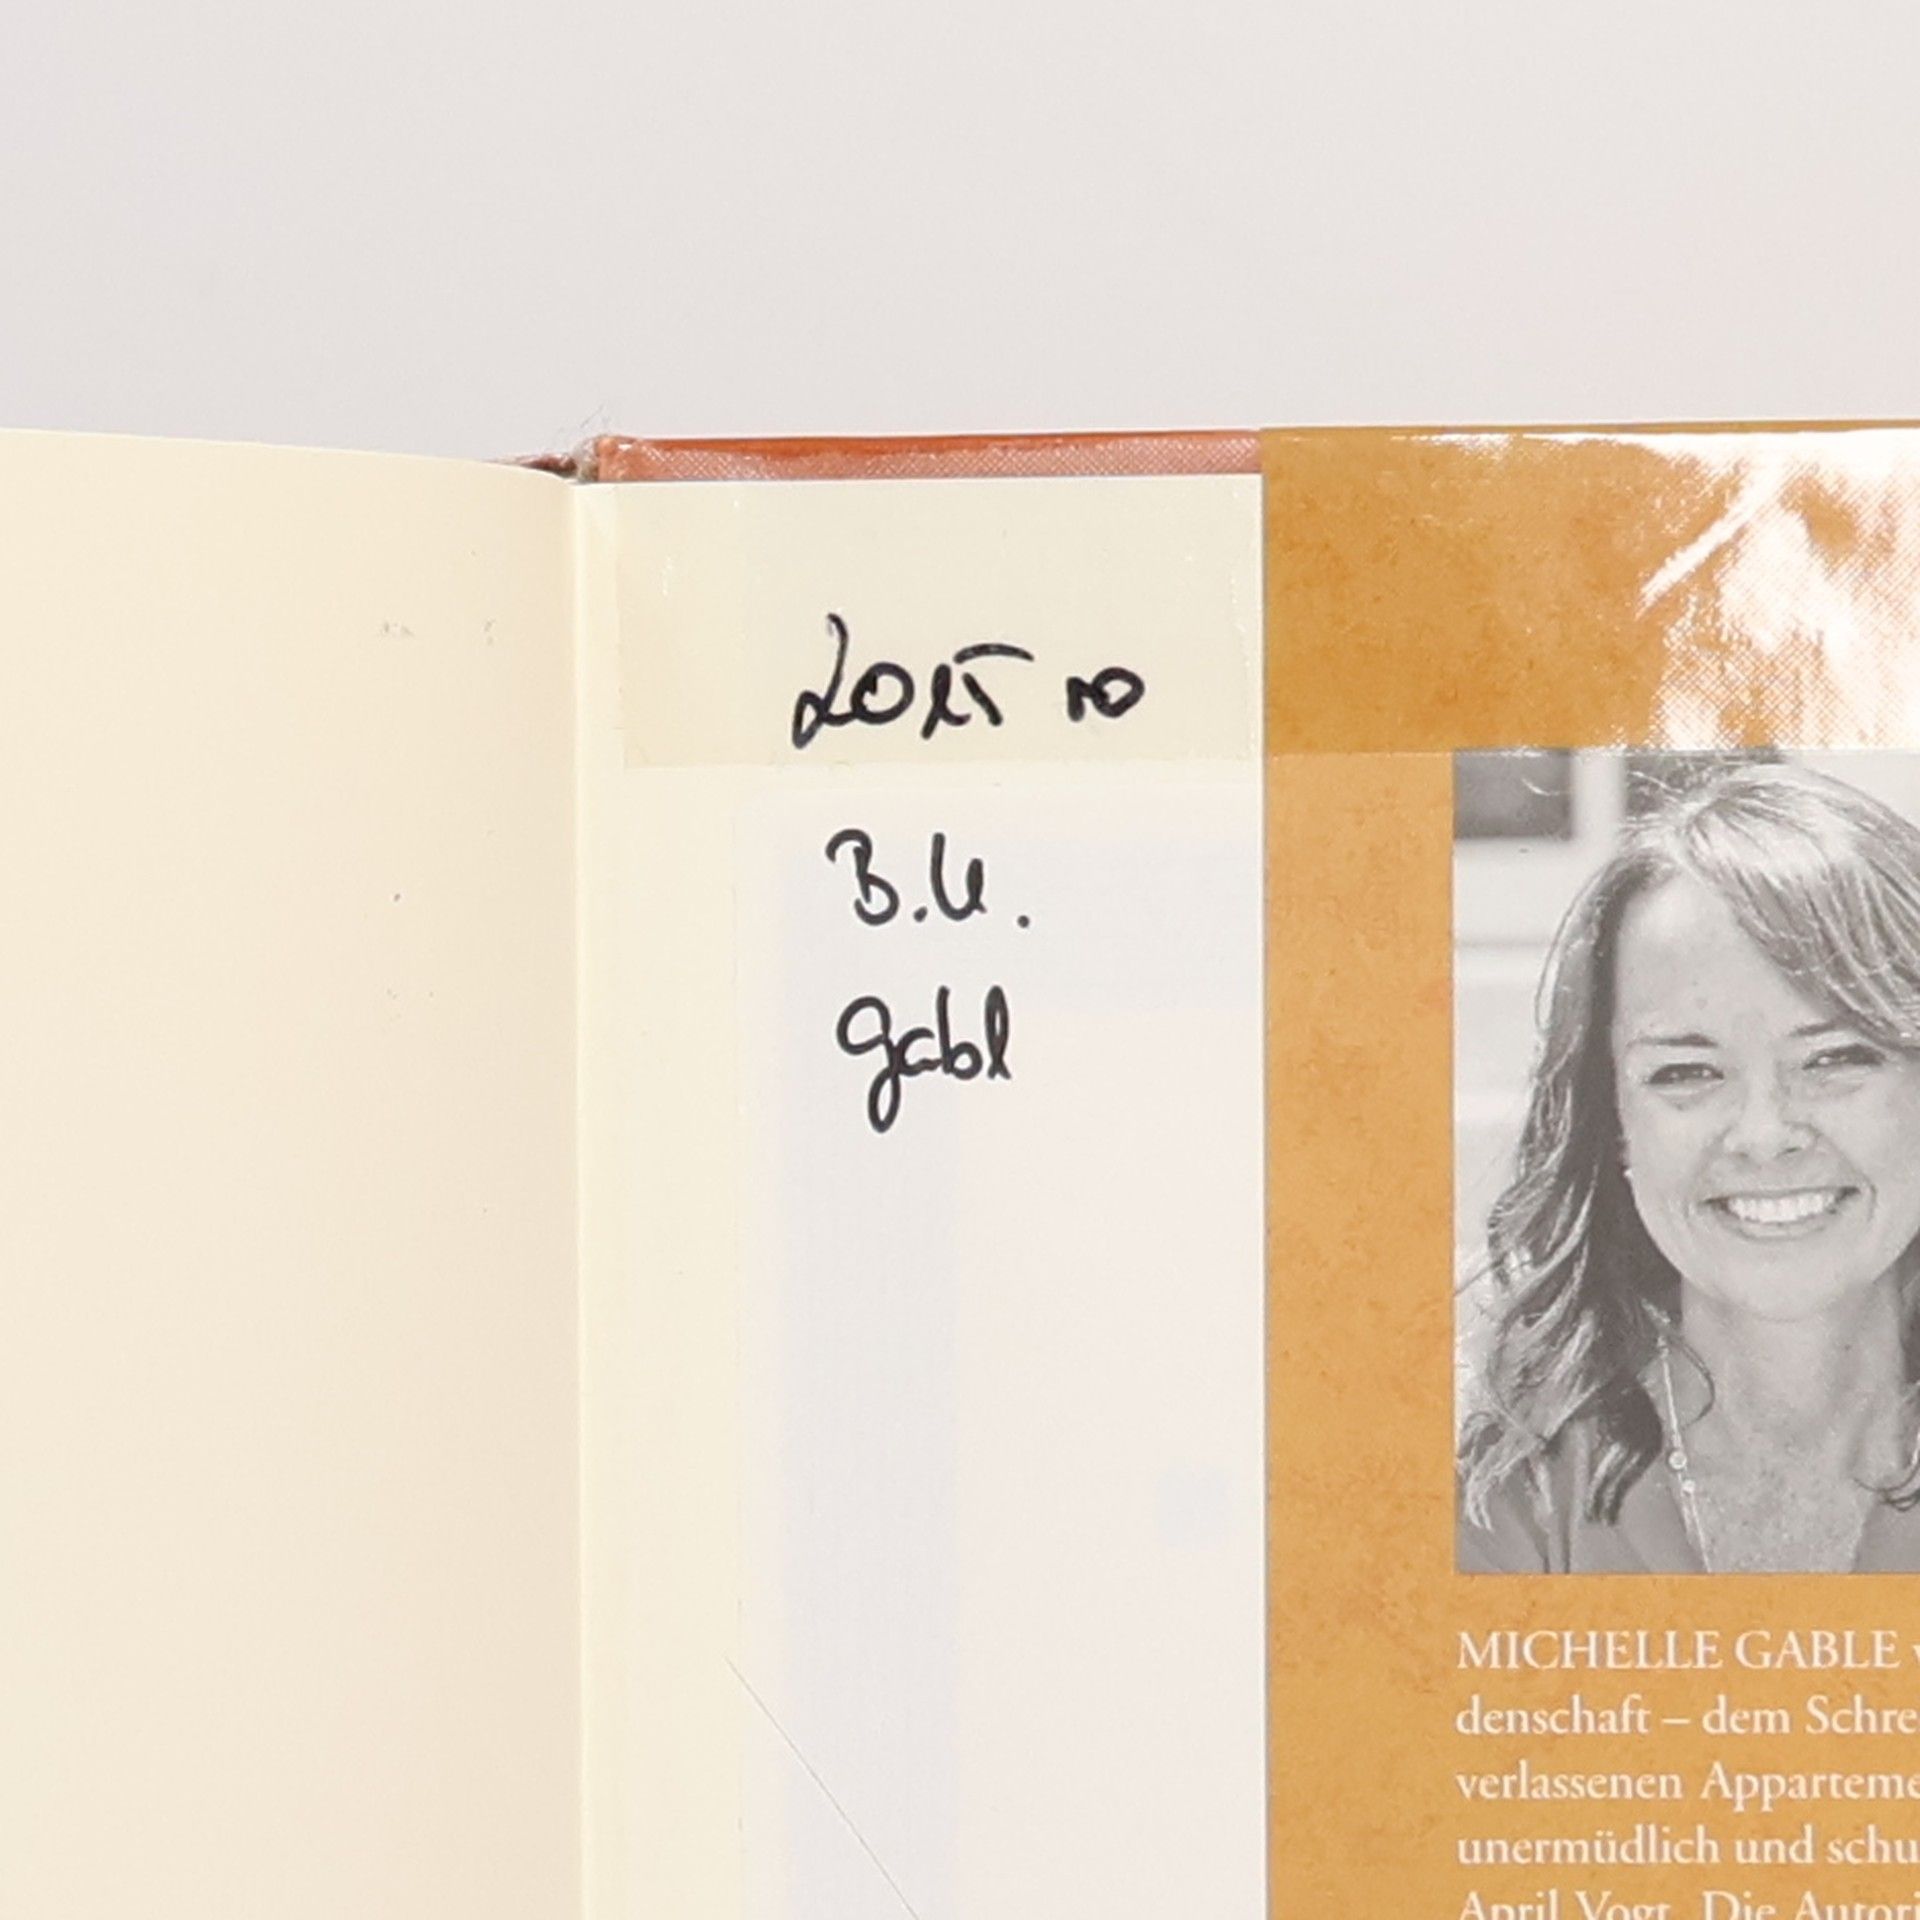 2015 10
B.U.
Gabl
MICHELLE GABLE
denschaft – dem Schre
verlassenen Apparteme
unermüdlich und schu
April Vogt. Die Autori